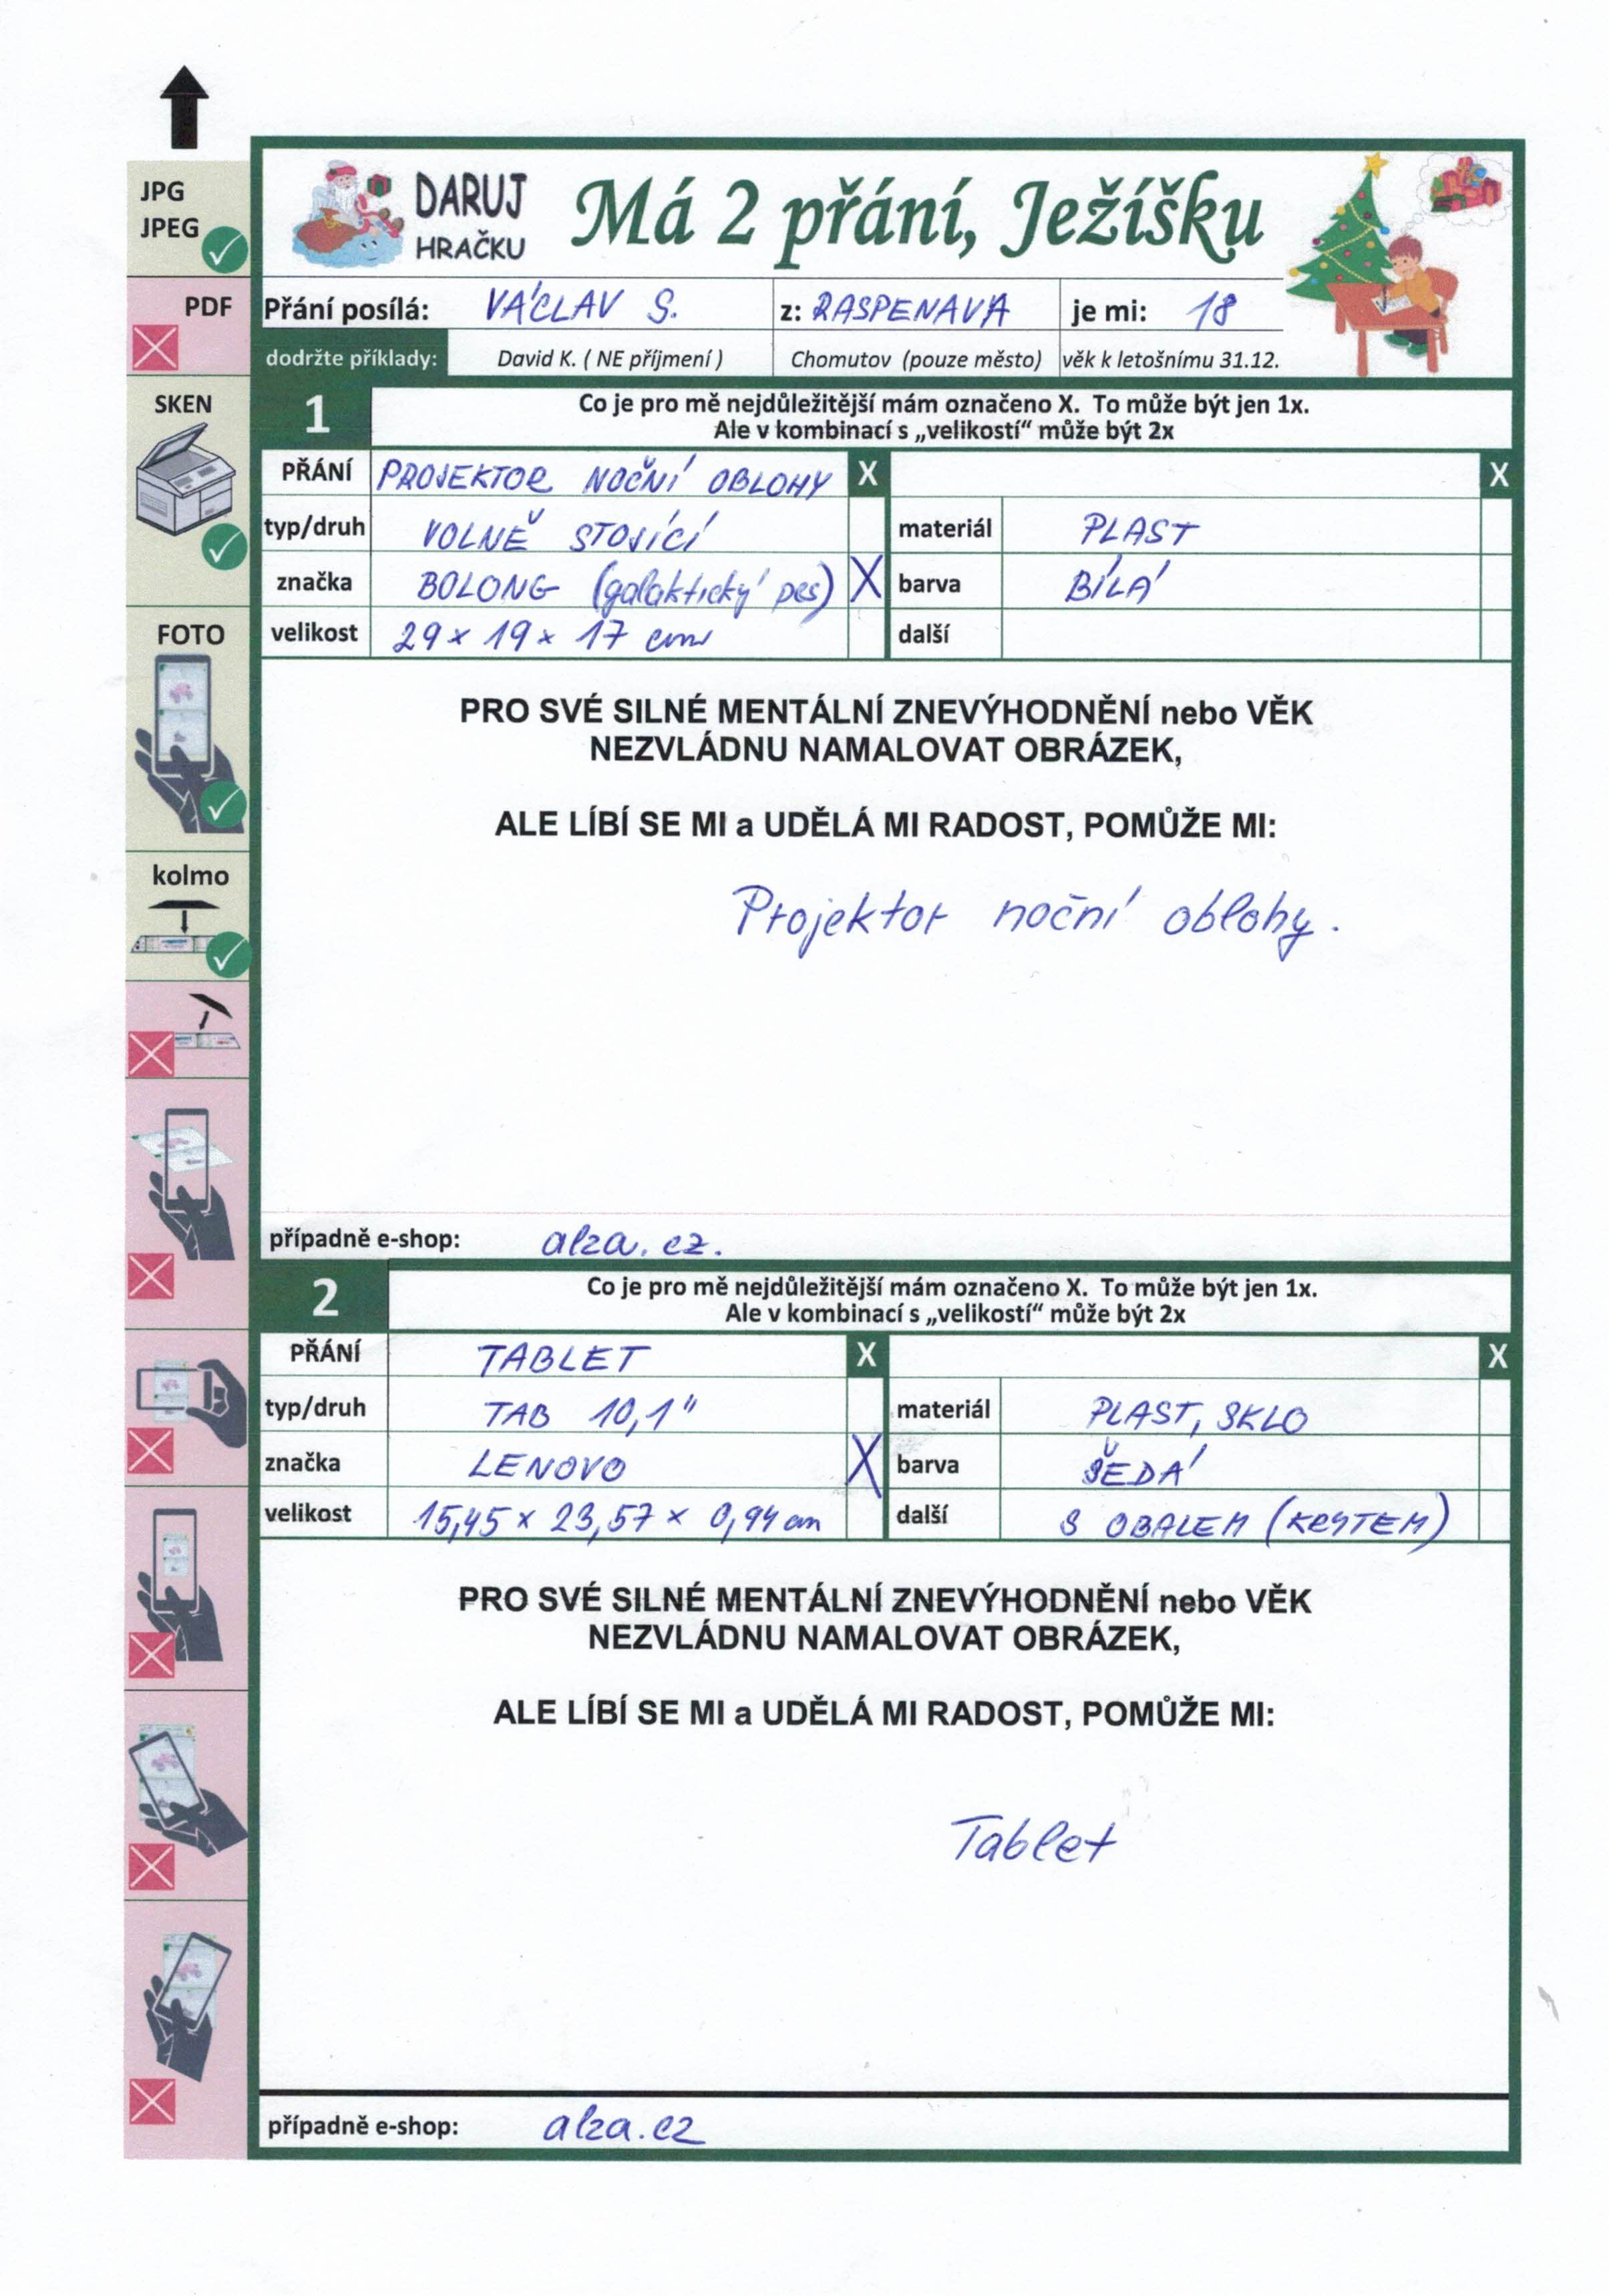 JPG
JPEG
PDF
SKEN
FOTO
kolmo
DARUJ
HRAČKU
Má 2 přání, Ježíšku
Přání posílá: VÁCLAV S. z: RASPENAVA je mi: 18
dodržte příklady: David K. ( NE příjmení ) Chomutov (pouze město) věk k letošnímu 31.12.
1 Co je pro mě nejdůležitější mám označeno X. To může být jen 1x.
Ale v kombinací s „velikostí“ může být 2x
PŘÁNÍ PROJEKTOR NOČNÍ OBLOHY X X
typ/druh VOLNĚ STOJÍCÍ materiál PLAST
značka BOLONG (galaktický pes) X barva BÍLÁ
velikost 29 x 19 x 17 cm další
PRO SVÉ SILNÉ MENTÁLNÍ ZNEVÝHODNĚNÍ nebo VĚK
NEZVLÁDNU NAMALOVAT OBRÁZEK,
ALE LÍBÍ SE MI a UDĚLÁ MI RADOST, POMŮŽE MI:
Projektor noční oblohy.
případně e-shop: alza.cz.
2 Co je pro mě nejdůležitější mám označeno X. To může být jen 1x.
Ale v kombinací s „velikostí“ může být 2x
PŘÁNÍ TABLET X X
typ/druh TAB 10,1" materiál PLAST, SKLO
značka LENOVO X barva ŠEDÁ
velikost 15,45 x 23,57 x 0,94 cm další S OBALEM (KRYTEM)
PRO SVÉ SILNÉ MENTÁLNÍ ZNEVÝHODNĚNÍ nebo VĚK
NEZVLÁDNU NAMALOVAT OBRÁZEK,
ALE LÍBÍ SE MI a UDĚLÁ MI RADOST, POMŮŽE MI:
Tablet
případně e-shop: alza.cz